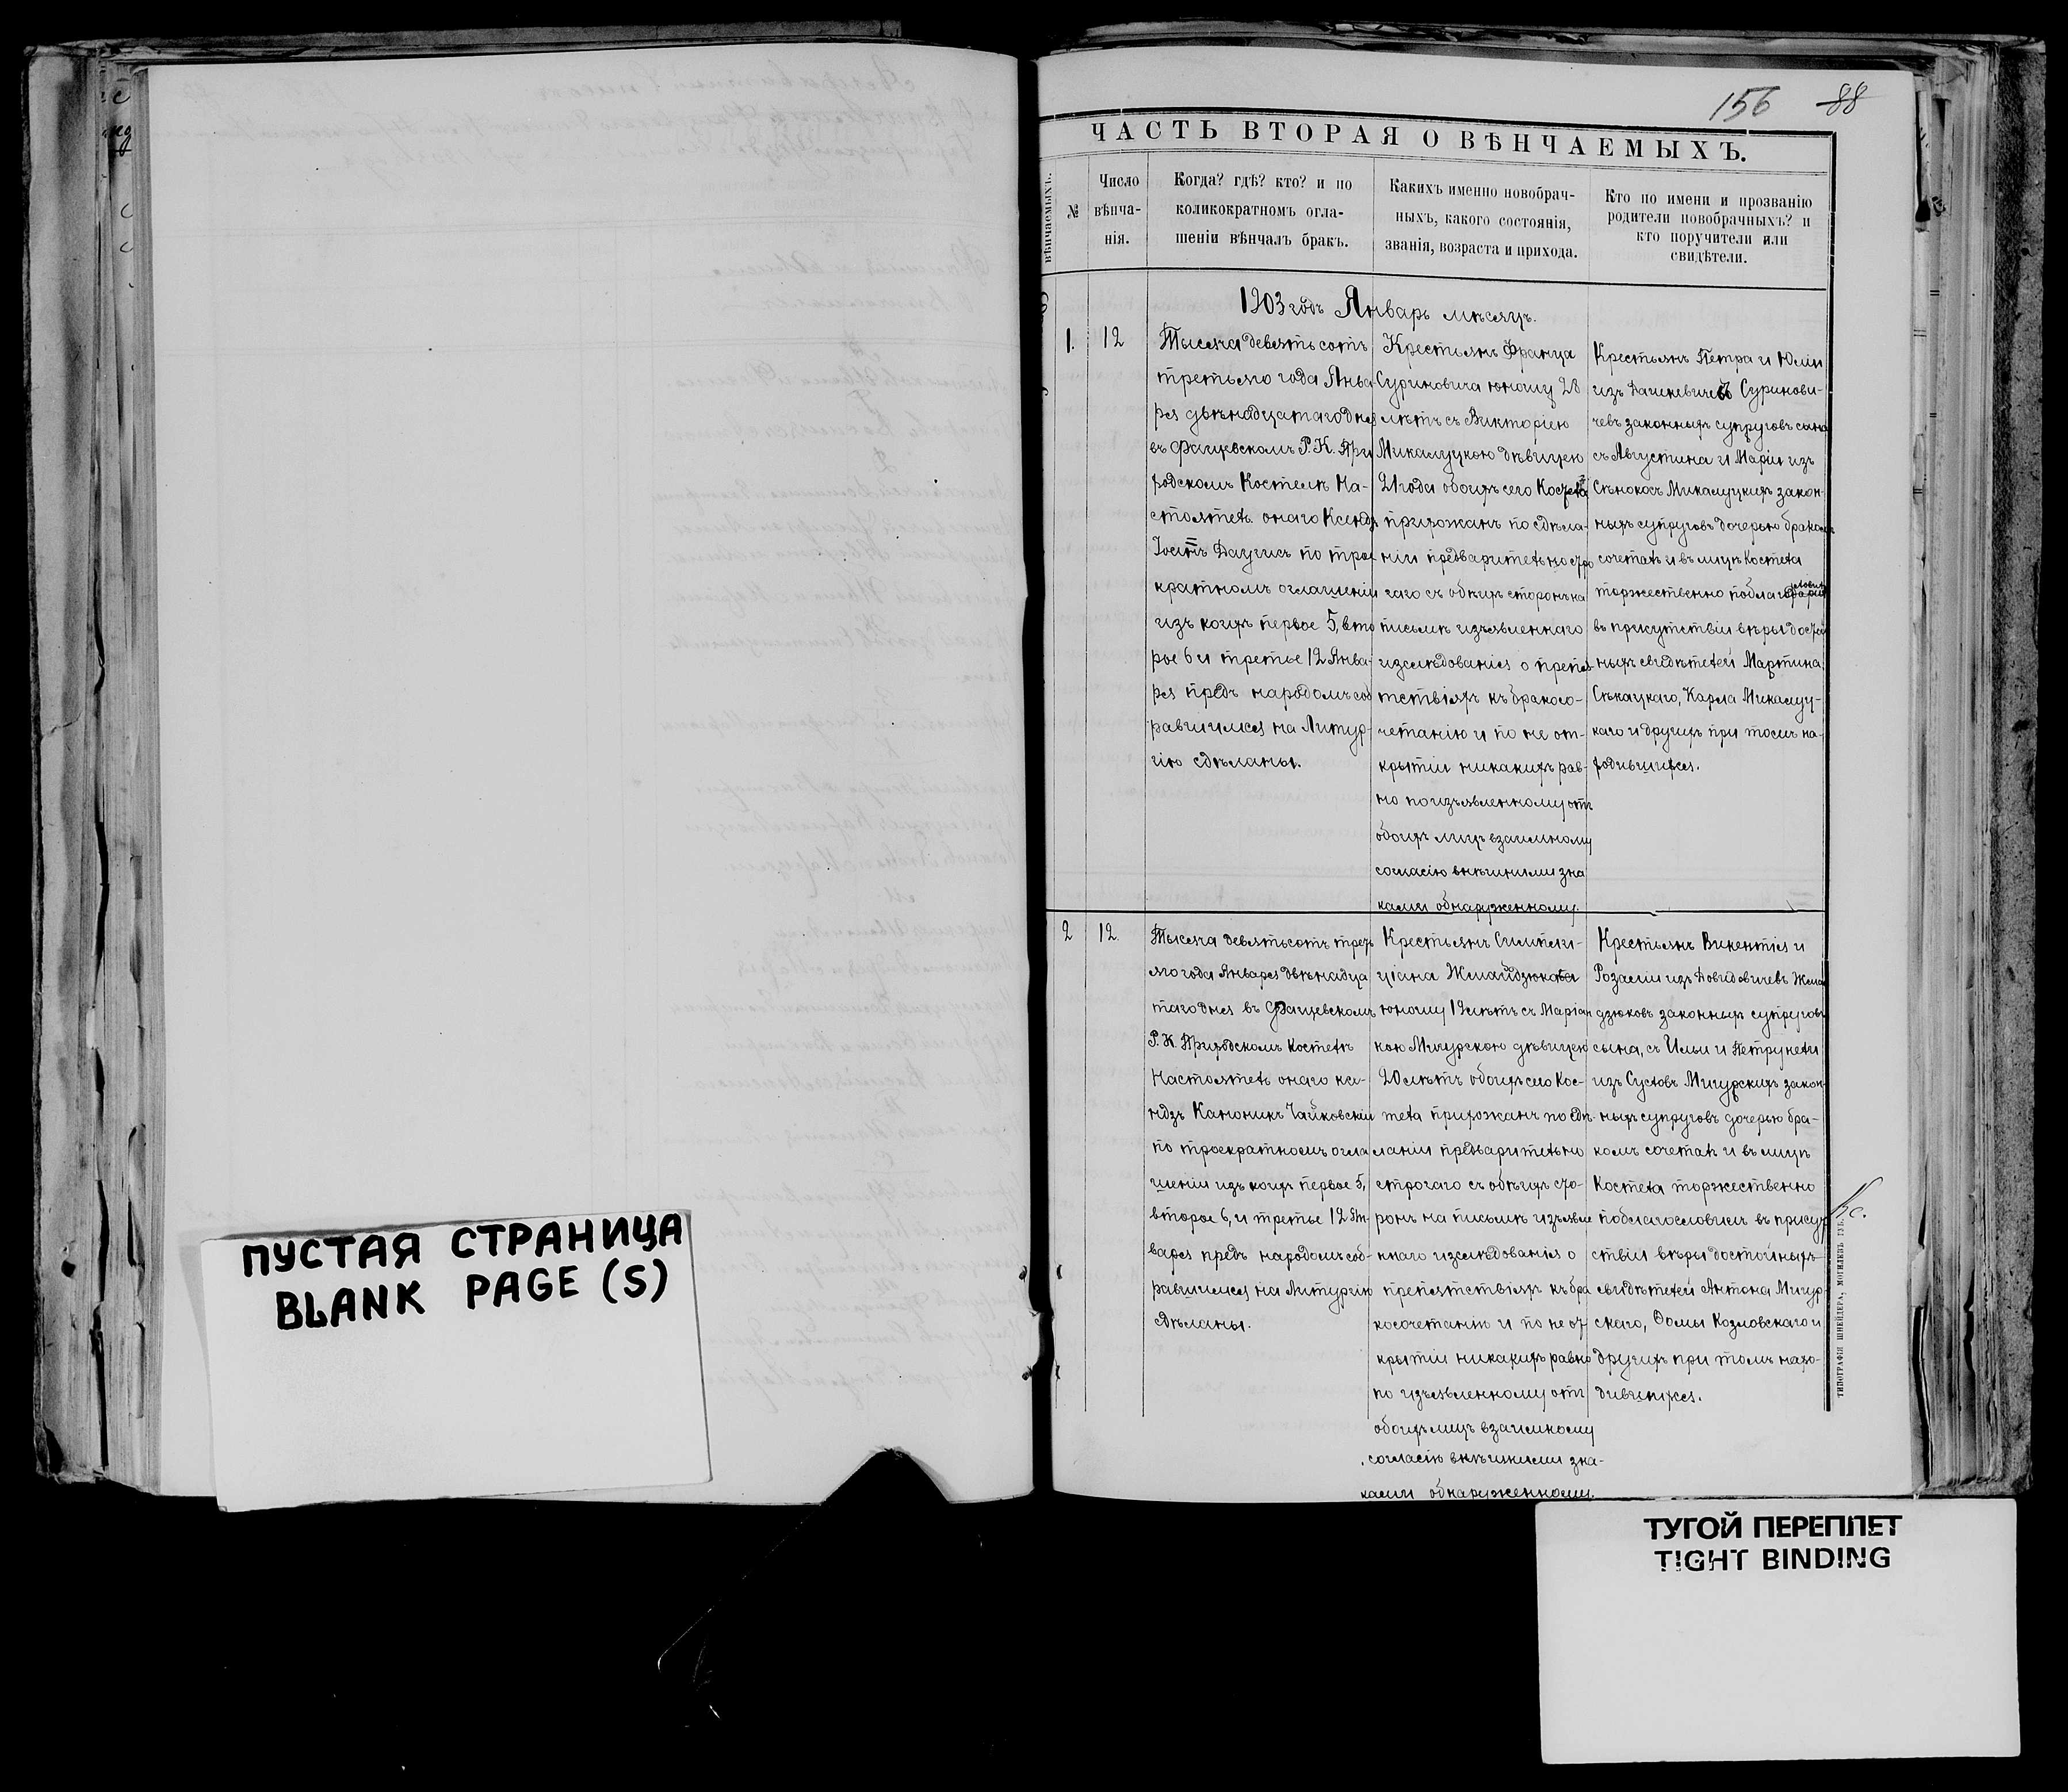 156 88
ЧАСТЬ ВТОРАЯ О ВѢНЧАЕМЫХЪ.
вѣнчаемыхъ.
№
Число
вѣнча-
нія.
Когда? гдѣ? кто? и по
коликократномъ огла-
шеніи вѣнчалъ бракъ.
Какихъ именно новобрач-
ныхъ, какого состоянія,
званія, возраста и прихода.
Кто по имени и прозванію
родители новобрачныхъ? и
кто поручители или
свидѣтели.
1903 годъ Январь мѣсяцъ.
1.
12
Тысяча девятьсотъ
третьяго года Янва
ря двѣнадцатаго дня
въ Фащевскомъ Р. К. При
родскомъ Костелѣ На-
стоятель онаго Ксендзъ
Іосифъ Даугисъ по трое
кратномъ оглашеніи
изъ коихъ первое 5, вто
рое 6 и третье 12 Янва-
ря предъ народомъ соб
равшимся на Литур-
гію сдѣланы.
Крестьянъ Франца
Суриновича юношу 28
лѣтъ съ Викторіею
Микалуцкою дѣвицею
21 года обоихъ сего Костела
прихожанъ по сдѣла-
ніи предварительно стро
гаго съ обѣихъ сторонъ на
письмѣ изъявленнаго
изслѣдованія о препя-
тствіяхъ къ бракосо-
четанію и по не от-
крытіи никакихъ рав-
но по изъявленному отъ
обоихъ лицъ взаимному
согласію внѣшними зна
ками обнаруженному.
Крестьянъ Петра и Юліи
изъ Дашкевичевъ Суринови-
чевъ законныхъ супруговъ сына
съ Августина и Маріи изъ
Сѣнокосъ Микалуцкихъ закон-
ныхъ супруговъ дочерью бракомъ
сочеталъ и въ лицѣ Костела
торжественно поблагословилъ
въ присутствіи вѣры достой
ныхъ свидѣтелей Мартина
Сѣкацкаго, Карла Микалуц-
каго и другихъ при томъ на-
ходившихся.
2
12.
Тысяча девятьсотъ треть
яго года Января двѣнадца
таго дня въ Фащевскомъ
Р. К. Приходскомъ Костелѣ
Настоятель онаго кс-
ндзъ Каноникъ Чайковскій
по троекратномъ огла
шеніи изъ коихъ первое 5,
второе 6, и третье 12 Ян-
варя предъ народомъ соб-
равшимся на Литургію
сдѣланы.
Крестьянъ Симпли-
ціана Жмайдзюкова
юношу 19 лѣтъ съ Маріан
ною Мигурскою дѣвицею
20 лѣтъ обоихъ сего Кос-
тела прихожанъ по сдѣ-
ланіи предварительно
строгаго съ обѣихъ сто-
ронъ на письмѣ изъявле
ннаго изслѣдованія о
препятствіяхъ къ бра
косочетанію и по не от
крытіи никакихъ равно
по изъявленному отъ
обоихъ лицъ взаимному
согласію внѣшними зна-
ками обнаруженному.
Крестьянъ Викентія и
Розаліи изъ Довидовичевъ Жмай
дзюковъ законныхъ супруговъ
сына, съ Ильи и Петрунели
изъ Сустовъ Мигурскихъ закон-
ныхъ супруговъ дочерью бра-
комъ сочеталъ и въ лицѣ
Костела торжественно
поблагословилъ въ присут
ствіи вѣры достойныхъ
свидѣтелей Антона Мигур
скаго, Ѳомы Козловскаго и
другихъ при томъ нахо-
дившихся.
ТИПОГРАФІЯ ШНЕЙДЕРА, МОГИЛЕВЪ ГУБ.
ПУСТАЯ СТРАНИЦА
BLANK PAGE (S)
ТУГОЙ ПЕРЕПЛЕТ
TIGHT BINDING